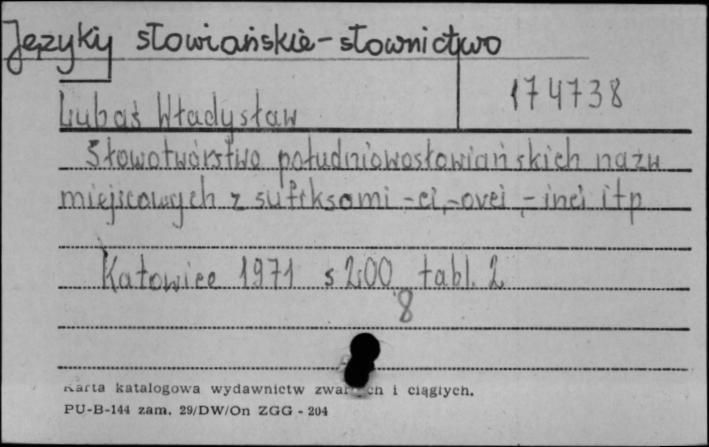 Języki słowiańskie - słownictwo
174738
Lubaś Władysław
Słowotwórstwo południowosłowiańskich nazw
miejscowych z sufiksami -ci, -ovci, -inci itp
Katowice 1971 s 200 tabl. 2
8
Karta katalogowa wydawnictw zwartych i ciągłych.
PU-B-144 zam. 29/DW/On ZGG - 204